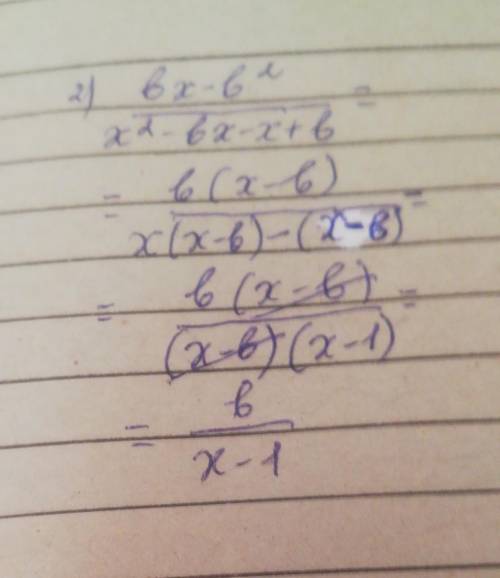 2) (bx - b²)/(x² - bx - x + b) =
= b(x - b)/(x(x - b) - (x - b)) =
= b(x - b)/((x - b)(x - 1)) =
= b/(x - 1)